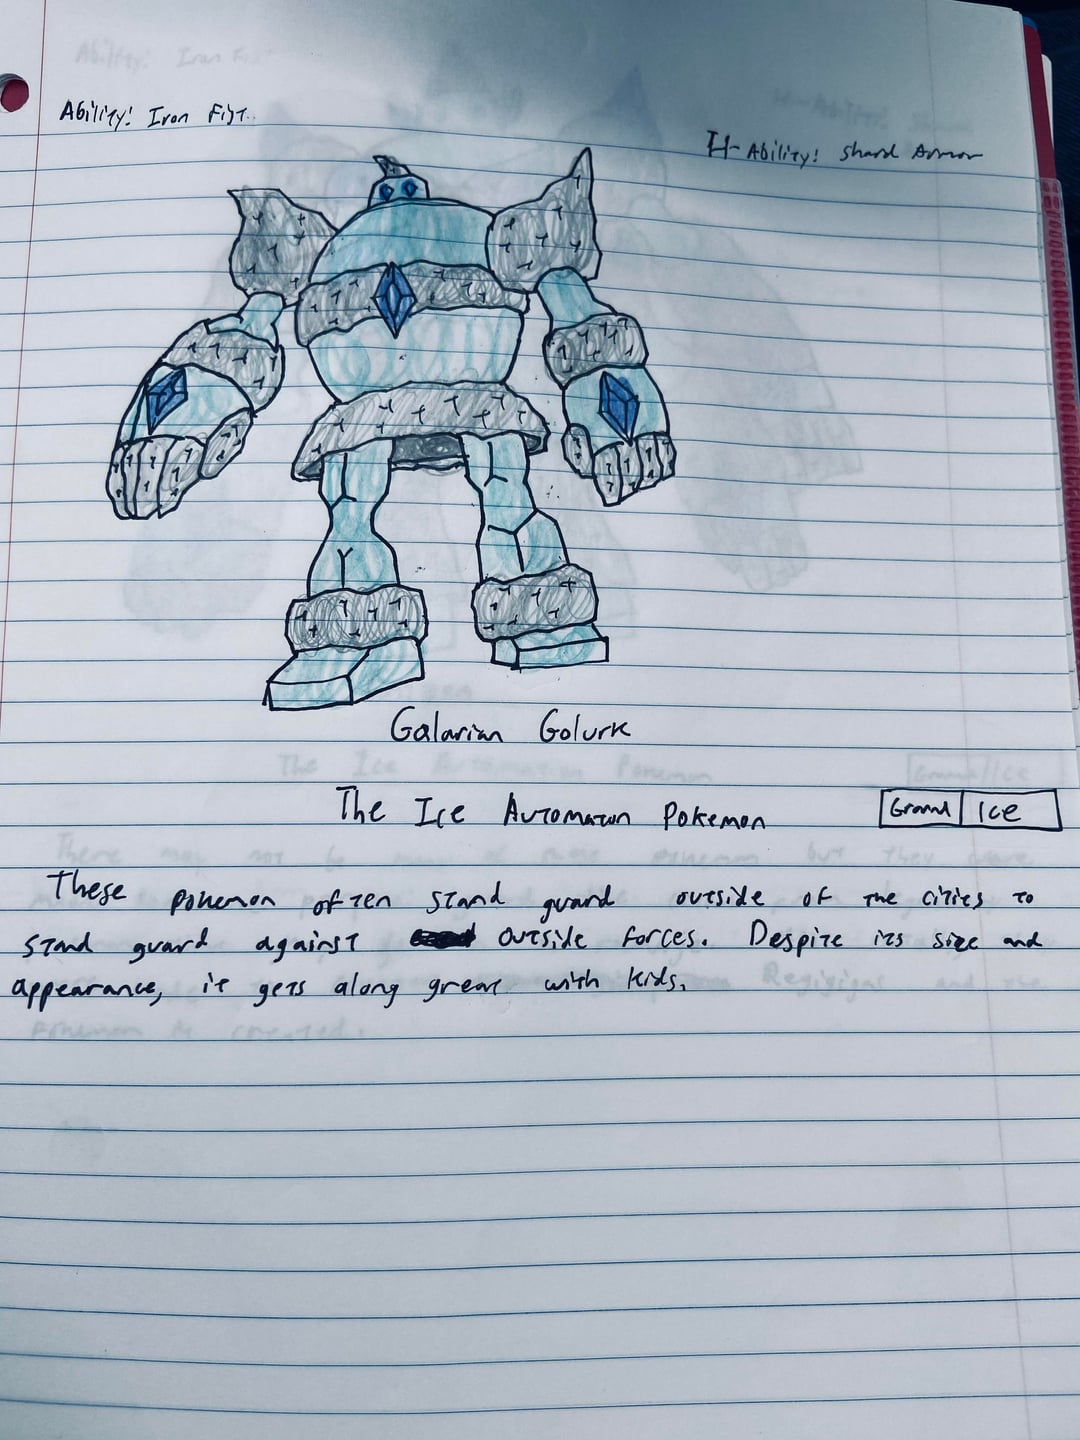 Ability: Iron Fist
H-Ability: Shard Armor
Galarian Golurk
The Ice Automaton Pokemon
Ground Ice
These Pokemon often stand guard outside of the cities to
stand guard against outside forces. Despite its size and
appearance, it gets along great with kids.